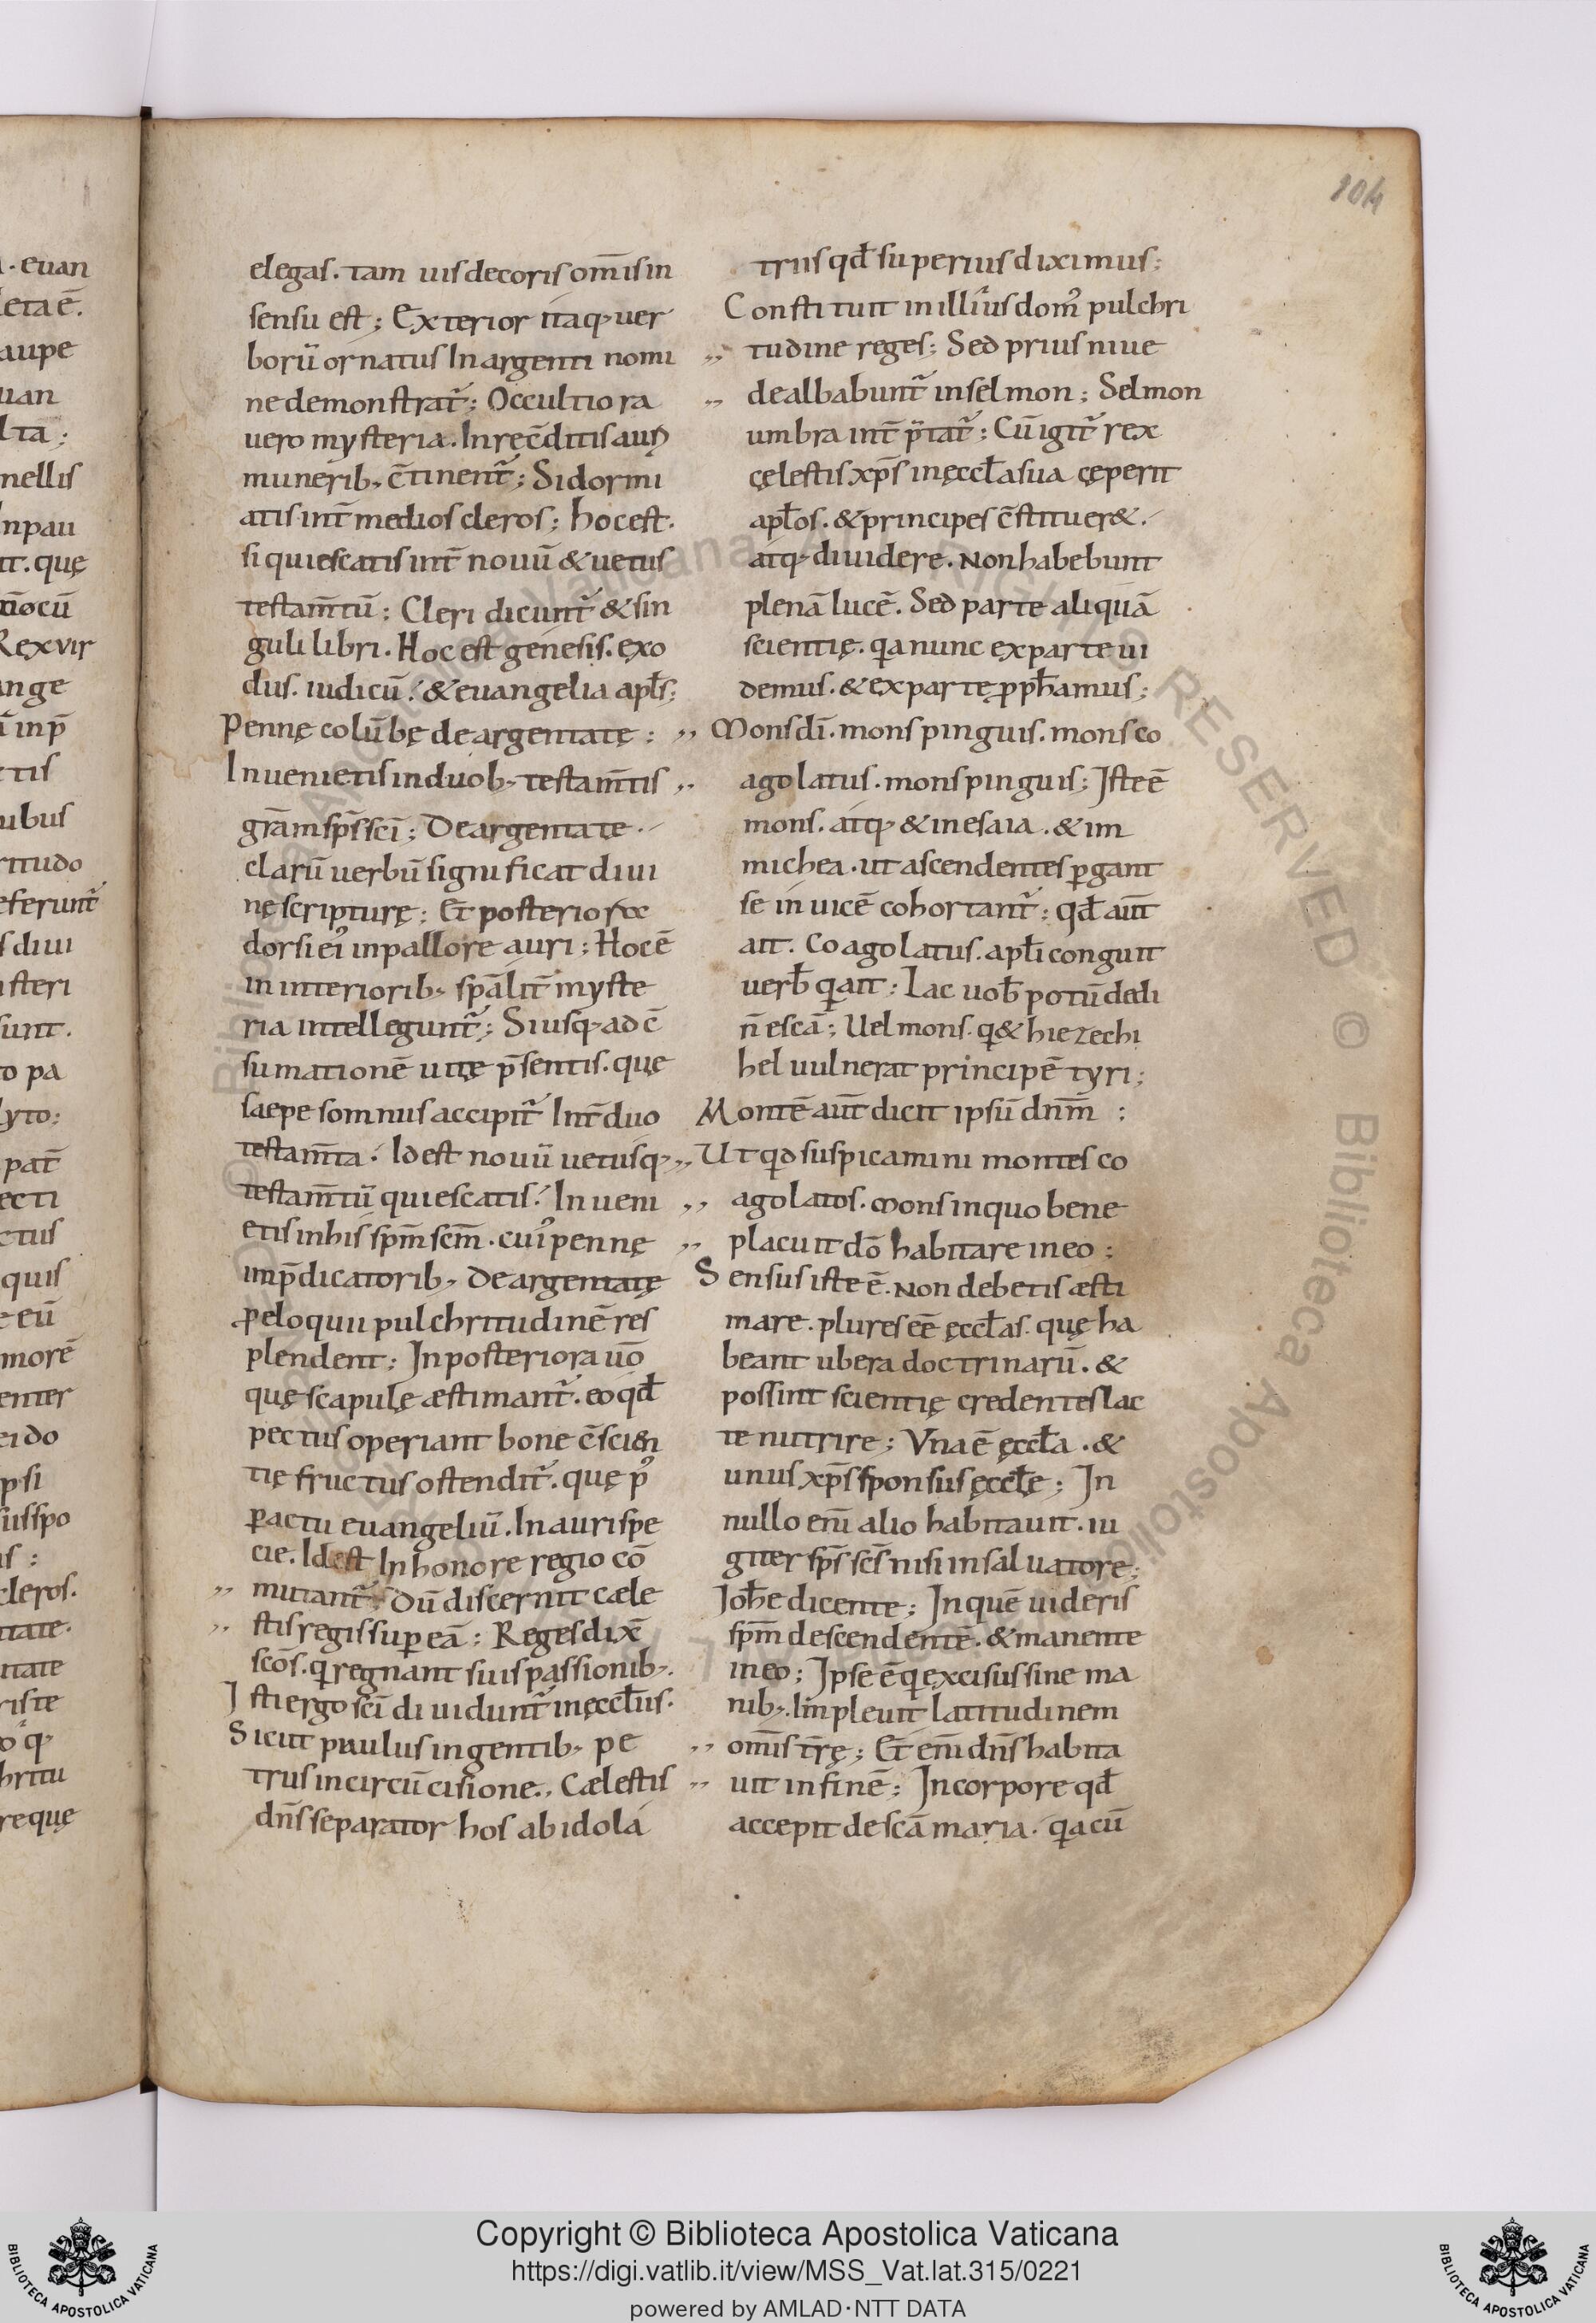 104
elegas. tam uis decoris om̄is in
sensu est; Exterior itaq; uer
borū ornatus In argenti nomi
ne demonstrat᷑; Occultiora
uero mysteria. In rec̄ditis auri
munerib; c̄tinent᷑; Si dormi
atis int̄ medios cleros; hoc est.
si quiescatis int̄ nouū & uetus
testam̄tū; Cleri dicunt᷑ & sin
guli libri. Hoc est genesis. exo
dus. iudicū. & euangelia apl̄s;
Pennę colūbę deargentatę;
Inuenietis in duob; testam̄tis
gr̄am sp̄s sc̄i; Deargentatę.
clarū uerbū significat diui
nę scripturę; Et posteriora
dorsi ei᷒ in pallore auri; Hoc ē
in interiorib; sp̄alit̄ myste
ria intellegunt᷑; Si usq; ad c̄
sumationē uitę p̄sentis. quę
saepe somnus accipit᷑ Int̄ duo
testam̄ta. Id est nouū uetusq;
testam̄tū quiescatis. Inueni
etis in his sp̄m sc̄m. cui᷒ pennę
in p̄dicatorib; deargentatę
ꝑ eloquii pulchritudinē res
plendent; In posteriora uō
quę scapulę æstimant᷑. eo qđ
pectus operiant bone c̄scien
tię fructus ostendit᷑. quę p᷒
ꝑactu euangeliū. In auri spe
cie. Id est In honore regio cō
,, mutant᷑; Dū discernit cæle
,, stis reges suꝑ eā; Reges dix̄
sc̄os. qi regnant suis passionib;.
Isti ergo sc̄i diuidunt᷑ in ęccl̄iis.
Sicut paulus in gentib; pe
trus in circūcisione., Cælestis
dn̄s separator hos ab idola
triis qđ superius diximus;
Constituit in illius dom᷒ pulchri
,, tudine reges; Sed prius niue
,, dealbabunt᷑ in selmon; Selmon
umbra int̄p̄tat᷑; Cū igit᷑ rex
cęlestis xp̄s in ęccl̄a sua cęperit
apl̄os. & principes c̄stituer&.
atq; diuidere. Non habebunt
plenā lucē. Sed parte aliquā
scientię. qia nunc ex parte ui
demus. & ex parte ꝓph̄amus;
,, Mons dī. mons pinguis. mons co
,, agolatus. mons pinguis; Iste ē
mons. atq; & in esaia. & im
michea. ut ascendentes ꝑgant
se in uicē cohortant᷑; qđ aūt
ait. Coagolatus. apl̄i congruit
uerb̄ qi ait; Lac uob̄ potū dedi
n̄ escā; Uel mons. q & hiezechi
hel uulnerat principē tyri;
Montē aūt dicit ipsū dn̄m̄;
,, Ut quid suspicamini montes co
,, agolatos. mons in quo bene
,, placuit dō habitare in eo;
Sensus iste ē. Non debetis æsti
mare. plures eē ęccl̄as. quę ha
beant ubera doctrinarū. &
possint scientię credentes lac
te nutrire; Vna ē ęccl̄a. &
unus xp̄s sponsus ęccl̄ę; In
nullo enī alio habitauit. iu
giter sp̄s sc̄s nisi in saluatore;
Ioh̄e dicente; In quē uideris
sp̄m descendentē. & manente
in eo; Ipse ē qi excisus sine ma
nib;. Impleuit latitudinem
,, om̄is tr̄ę; Et enī dn̄s habita
,, uit in finē; In corpore qđ
accepit de sc̄a maria. qia cū
Copyright © Biblioteca Apostolica Vaticana
https://digi.vatlib.it/view/MSS_Vat.lat.315/0221
powered by AMLAD·NTT DATA